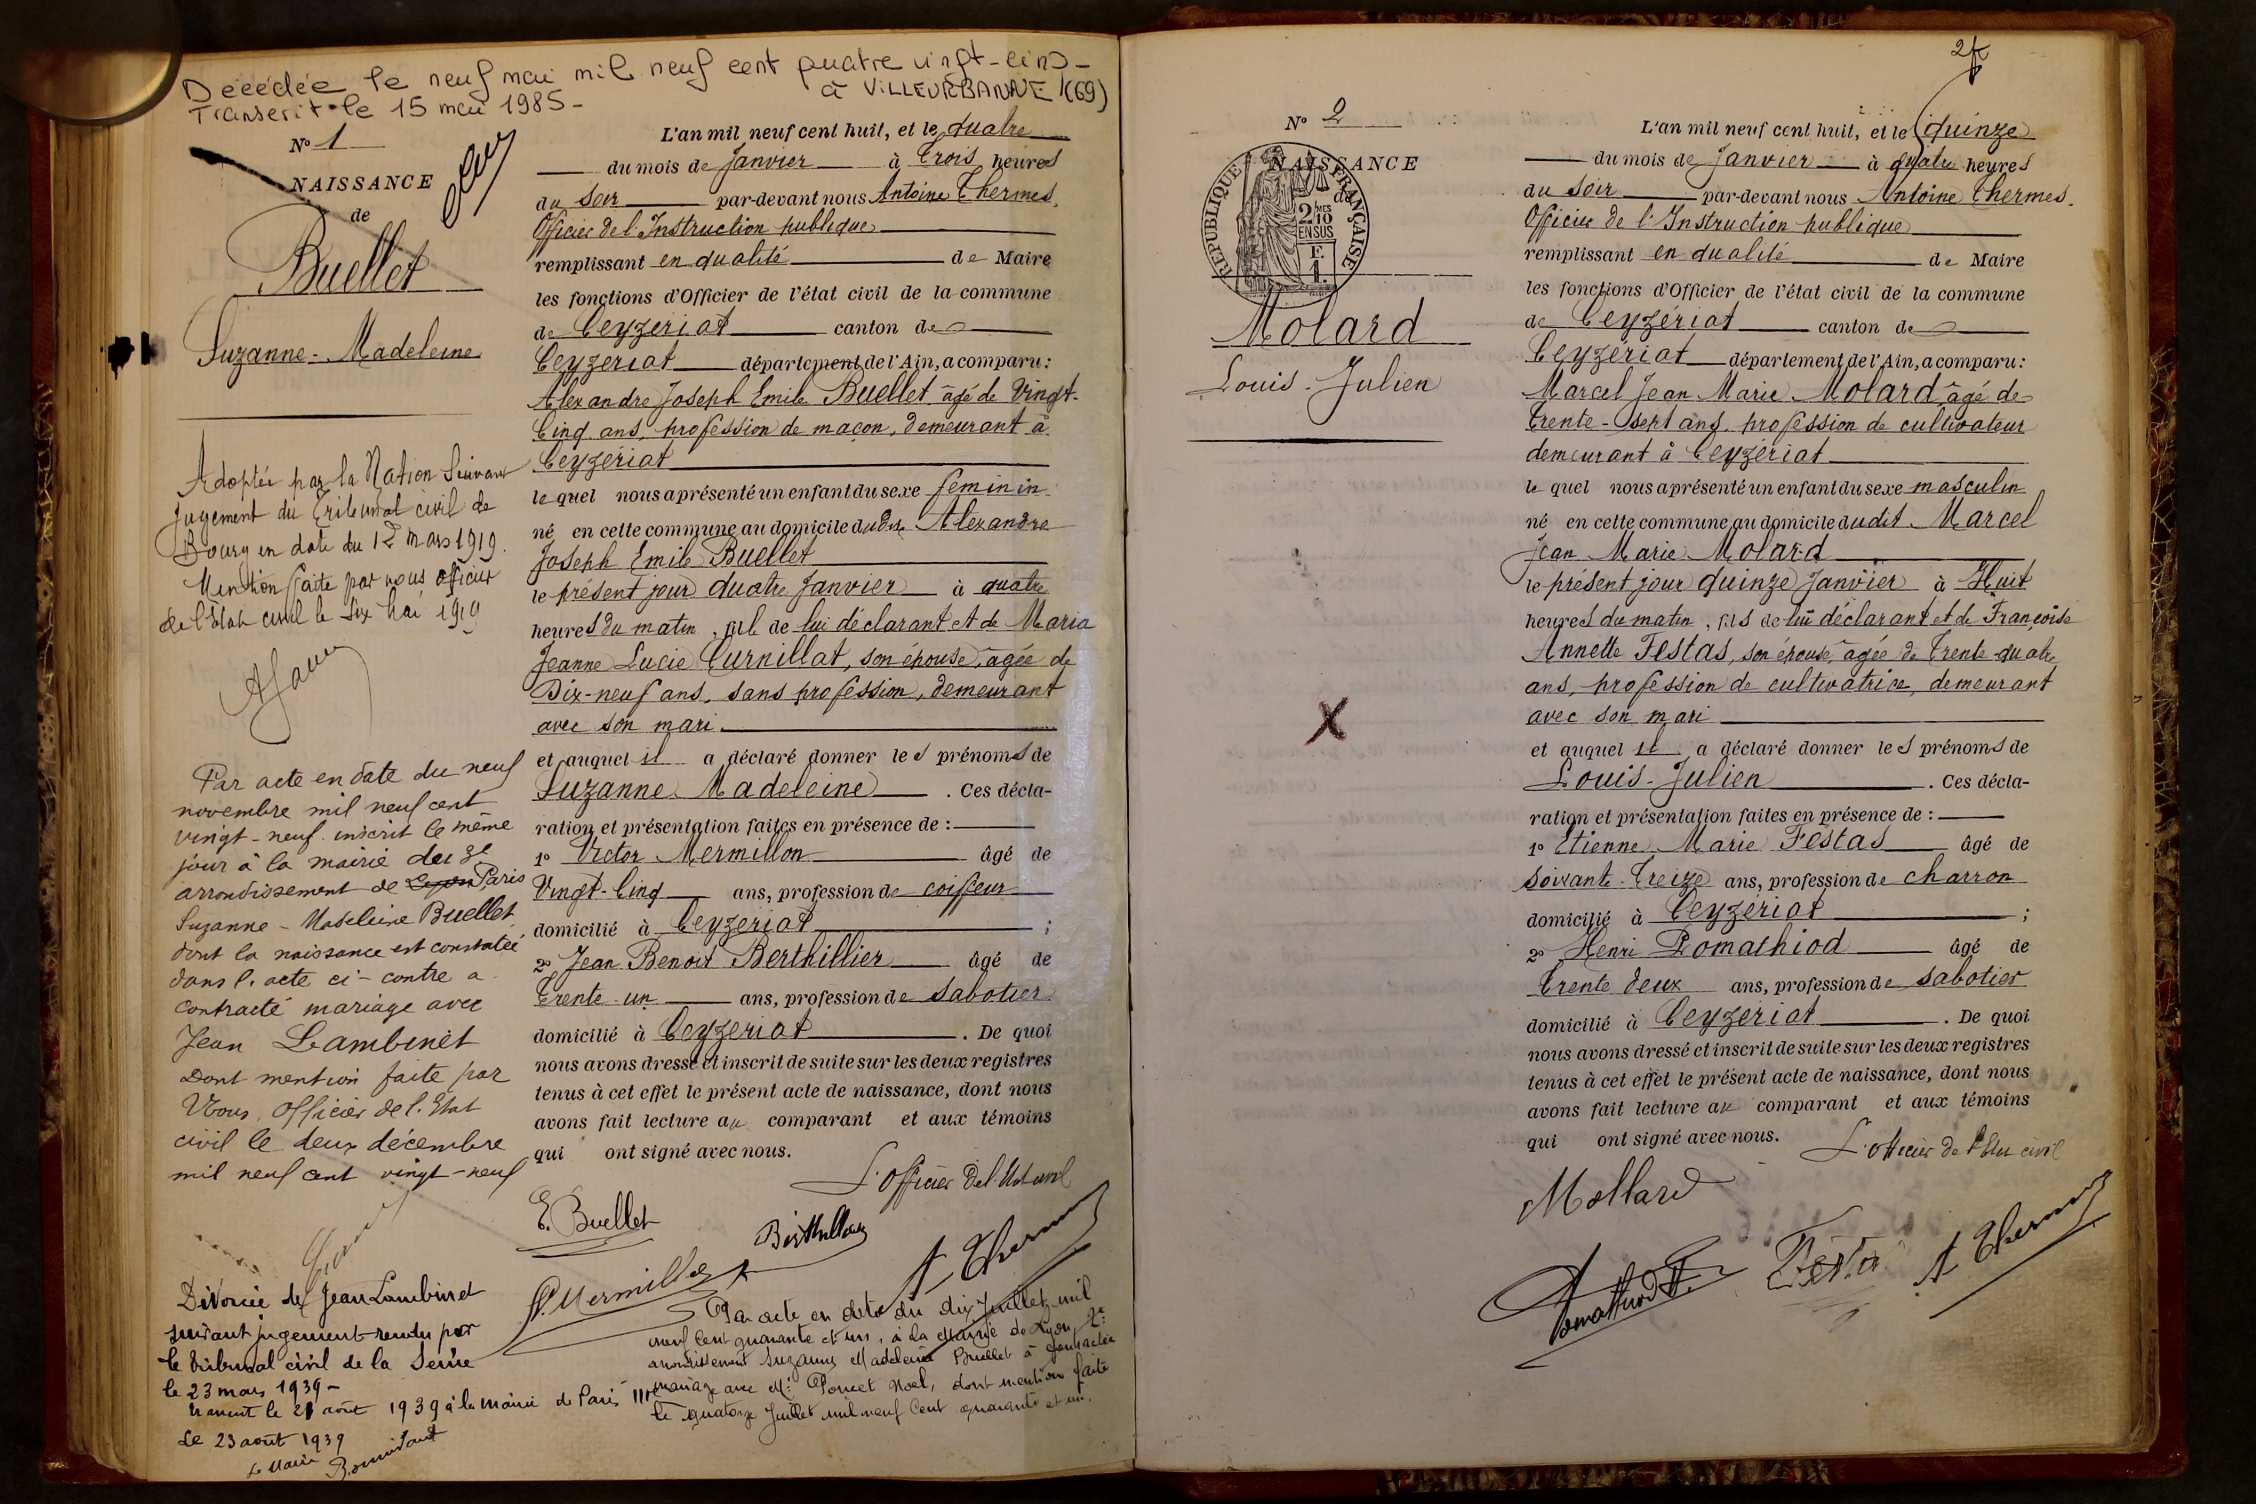 Décédée le neuf mai mil neuf cent quatre vingt-cinq-
à VILLEURBANNE (69)
Transcrit le 15 mai 1985-
No 1
NAISSANCE
de
Buellet
Suzanne-Madeleine
Adoptée par la Nation suivant
jugement du Tribunal civil de
Bourg en date du 12 mars 1919.
Mention faite par nous officier
de l'État civil le six Mai 1919
Par acte en date du neuf
novembre mil neuf cent
vingt-neuf inscrit le même
jour à la mairie du 3e
arrondissement de Lyon Paris
Suzanne-Madeleine Buellet
dont la naissance est constatée
dans l'acte ci-contre a
contracté mariage avec
Jean Lambinet
Dont mention faite par
Nous, Officier de l'Etat
civil le deux décembre
mil neuf cent vingt-neuf
Divorcée de Jean Lambinet
suivant jugement rendu par
le tribunal civil de la Seine
le 23 mars 1939-
le 21 août 1939 à la mairie de Paris IIIe
Le 23 août 1939
Le Maire
L'an mil neuf cent huit, et le quatre
du mois de Janvier à Trois heures
du Soir par-devant nous Antoine Thermes,
Officier de l'Instruction publique
remplissant en qualité de Maire
les fonctions d'Officier de l'état civil de la commune
de Ceyzériat canton de
Ceyzériat département de l'Ain, a comparu :
Alexandre Joseph Emile Buellet âgé de Vingt-
Cinq ans, profession de maçon, demeurant à
Ceyzériat
lequel nous a présenté un enfant du sexe féminin
né en cette commune au domicile dudit Alexandre
Joseph Emile Buellet
le présent jour quatre Janvier à quatre
heures du matin, fil de lui déclarant et de Maria
Jeanne Lucie Curnillat, son épouse, âgée de
Dix-neuf ans, sans profession, demeurant
avec son mari
et auquel il a déclaré donner les prénoms de
Suzanne Madeleine . Ces décla-
ration et présentation faites en présence de :
1o Victor Mermillon âgé de
Vingt-Cinq ans, profession de coiffeur
domicilié à Ceyzériat ;
2o Jean Benoit Berthillier âgé de
Trente-un ans, profession de Sabotier
domicilié à Ceyzériat . De quoi
nous avons dressé et inscrit de suite sur les deux registres
tenus à cet effet le présent acte de naissance, dont nous
avons fait lecture au comparant et aux témoins
qui ont signé avec nous.
L'Officier de l'Etat civil
E. Buellet
Berthillier
V. Mermillon
A Thermes
Par acte en date du dix Juillet mil
neuf cent quarante et un, à la Mairie de Lyon, 2e
arrondissement Suzanne Madeleine Buellet a contracté
mariage avec Mr Poncet Noel, dont mention faite
le quatorze Juillet mil neuf cent quarante et un.
2
No 2
NAISSANCE
de
RÉPUBLIQUE FRANÇAISE
2 MES
10
EN SUS
E.
1.
Molard
Louis-Julien
X
L'an mil neuf cent huit, et le quinze
du mois de Janvier à quatre heures
du Soir par-devant nous Antoine Thermes.
Officier de l'Instruction publique
remplissant en qualité de Maire
les fonctions d'Officier de l'état civil de la commune
de Ceyzériat canton de
Ceyzériat département de l'Ain, a comparu :
Marcel Jean Marie Molard âgé de
Trente-sept ans, profession de cultivateur
demeurant à Ceyzériat
lequel nous a présenté un enfant du sexe masculin
né en cette commune au domicile dudit Marcel
Jean Marie Molard
le présent jour quinze Janvier à Huit
heures du matin, fils de lui déclarant et de Françoise
Annette Festas, son épouse, âgée de Trente-quatre
ans, profession de cultivatrice, demeurant
avec son mari
et auquel il a déclaré donner les prénoms de
Louis-Julien . Ces décla-
ration et présentation faites en présence de :
1o Etienne Marie Festas âgé de
soixante-Treize ans, profession de charron
domicilié à Ceyzériat ;
2o Henri Pomathiod âgé de
Trente deux ans, profession de Sabotier
domicilié à Ceyzériat . De quoi
nous avons dressé et inscrit de suite sur les deux registres
tenus à cet effet le présent acte de naissance, dont nous
avons fait lecture au comparant et aux témoins
qui ont signé avec nous.
L'Officier de l'Etat civil
Mollard
Pomathiod H.
Festas
A Thermes